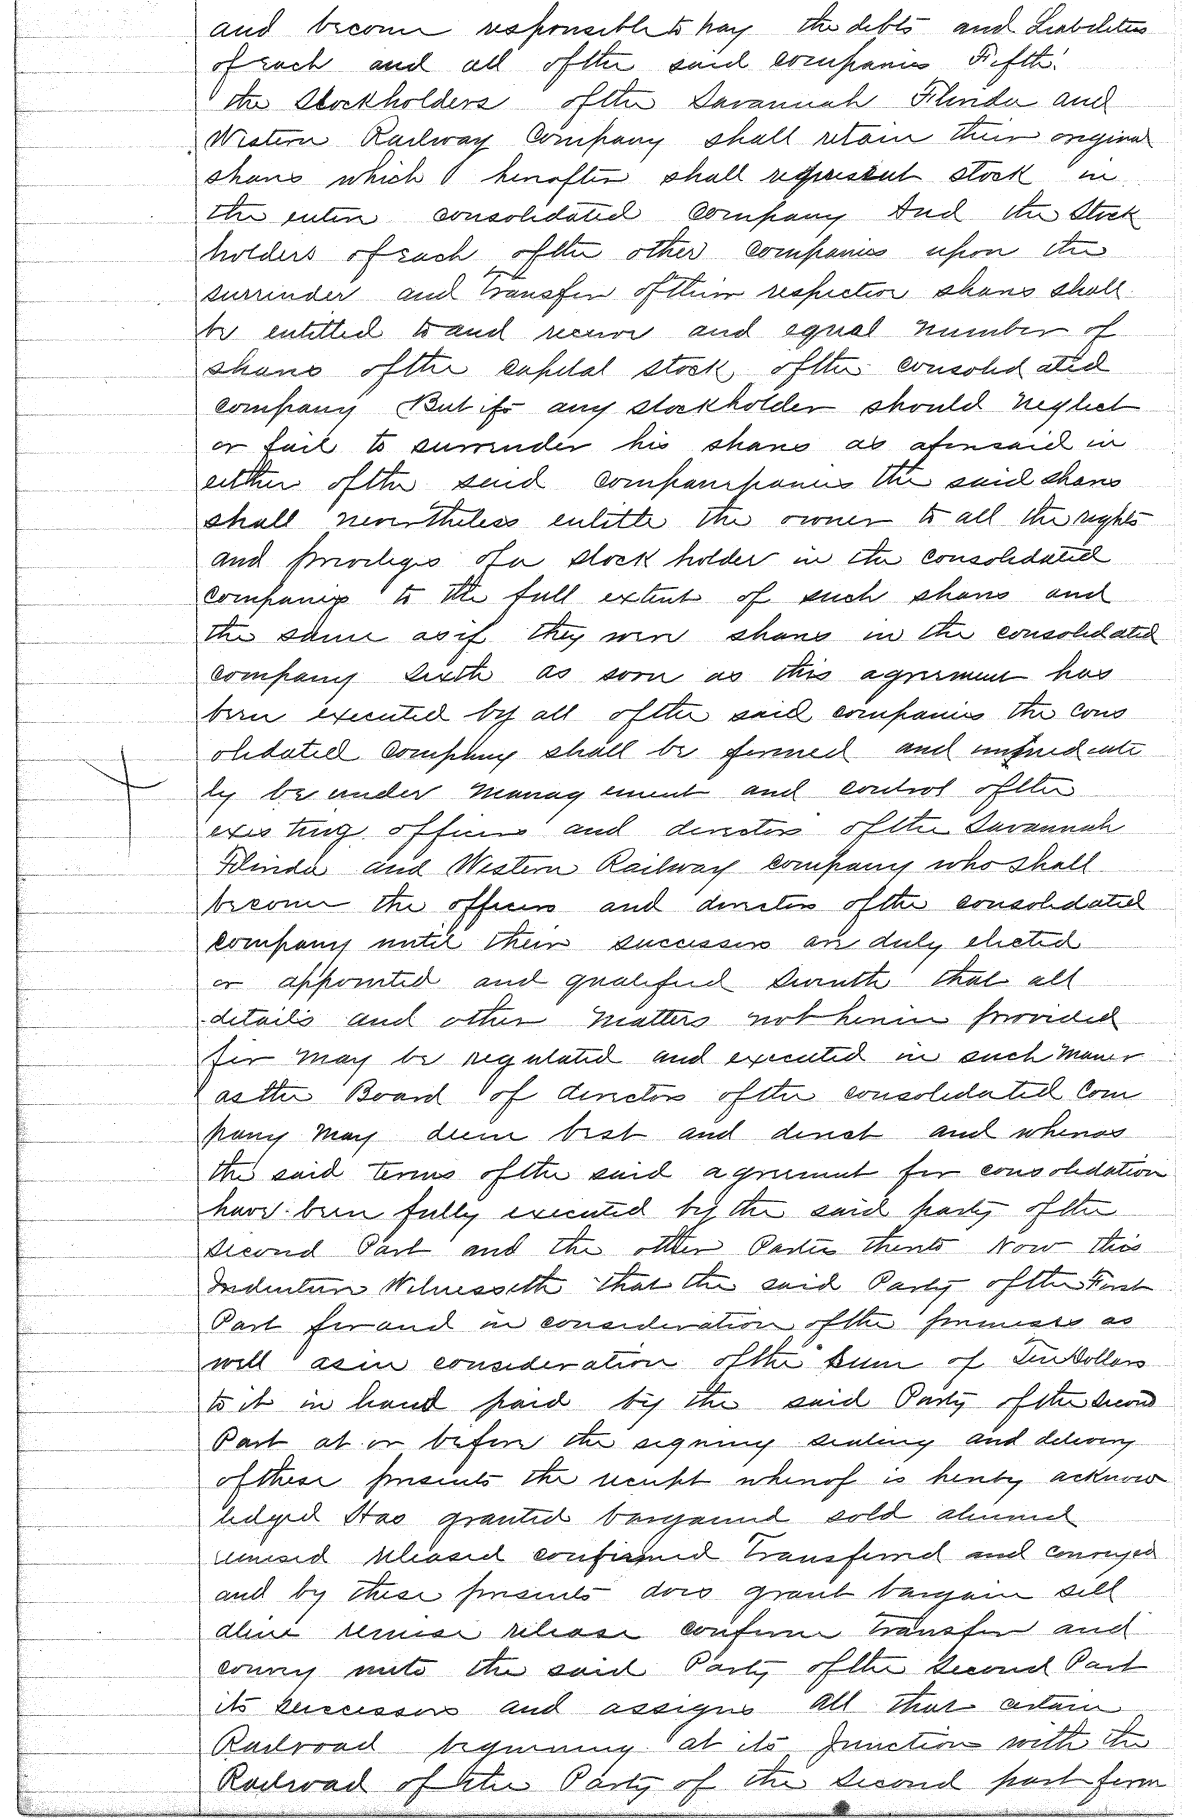 and become responsible to pay the debts and Liabilities
of each and all of the said companies Fifth
the Stockholders of the Savannah Florida and
Western Railway Company shall retain their original
shares which hereafter shall represent stock in
the entire consolidated Company And the Stock
holders of each of the other companies upon the
surrender and transfer of their respective shares shall
be entitled to and receive and equal number of
shares of the capital stock of the consolidated
company But if any stockholder should neglect
or fail to surrender his shares as aforesaid in
either of the said compampanies the said shares
shall nevertheless entitle the owner to all the rights
and privileges of a stock holder in the consolidated
companies to the full extent of such shares and
the same as if they were shares in the consolidated
company Sixth as soon as this agreement has
been executed by all of the said companies the cons
olidated Company shall be formed and immediate
ly be under management and control of the
existing officers and directors of the Savannah
Florida and Western Railway company who shall
become the officers and directors of the consolidated
company until their successors are duly elected
or appointed and qualified Seventh that all
details and other matters not herein provided
for may be regulated and executed in such maner
as the Board of directors of the consolidated Com
pany may deem best and direct and whereas
the said terms of the said agreement for consolidation
have been fully executed by the said party of the
Second Part and the other Parties thereto Now this
Indenture Witnesseth that the said Party of the First
Part for and in consideration of the premises as
well as in consideration of the Sum of Ten Dollars
to it in hand paid by the said Party of the Second
Part at or before the signing sealing and delivery
of these presents the receipt whereof is hereby acknow
ledged Has granted bargained sold aliened
remised released confirmed transferred and conveyed
and by these presents does grant bargain sell
aliene remise release confirm transfer and
convey unto the said Party of the Second Part
its successors and assigns all that certain
Railroad beginning at its Junction with the
Railroad of the Party of the Second part form